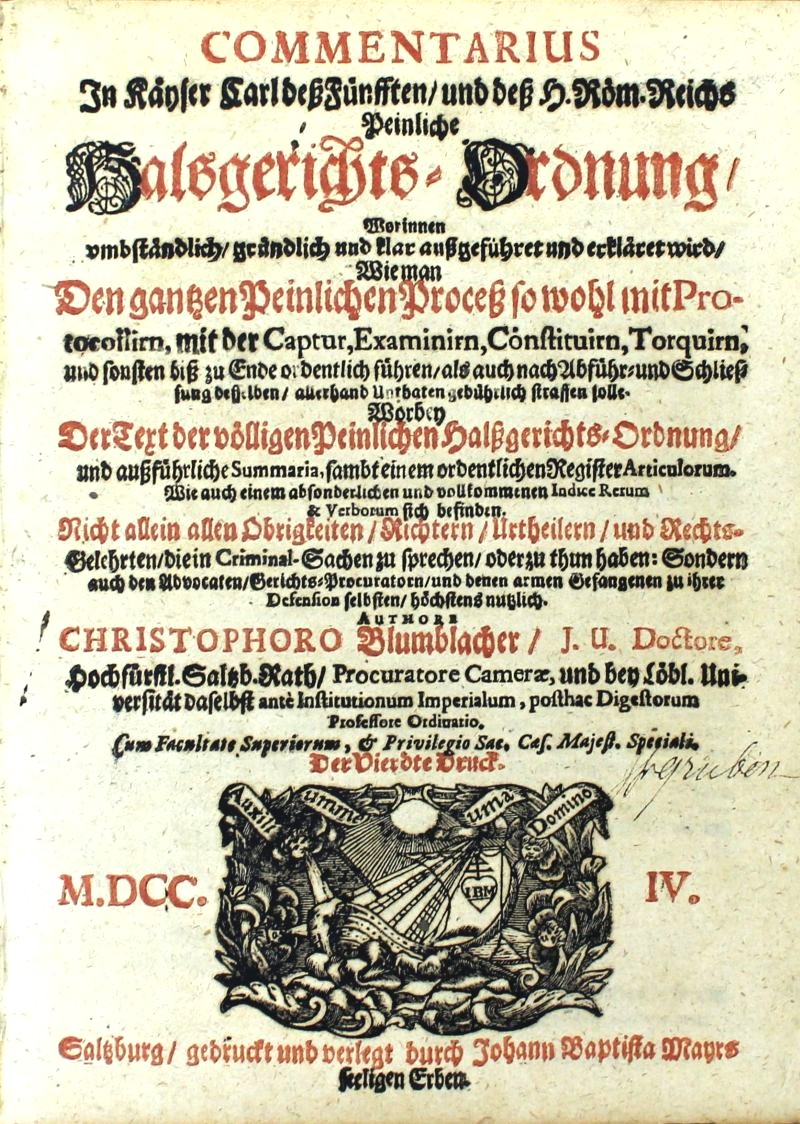 COMMENTARIUS
In Käyser Carl deß Fünfften / und deß H. Röm. Reichs
Peinliche
Halsgerichts- Ordnung /
Worinnen
vmbständlich / gründlich und klar außgeführet und erkläret wird /
Wie man
Den gantzen Peinlichen Proceß so wohl mit Pro-
tocollirn, mit der Captur, Examinirn, Cönstituirn, Torquirn,
und sonsten biß zu Ende ordentlich führen / als auch nach Abführ- und Schließ
sung desselben / allerhand Unthaten gebührlich straffen solle.
Worbey
Der Text der völligen Peinlichen Halßgerichts-Ordnung /
und außführliche Summaria, sambt einem ordentlichen Register Articulorum.
Wie auch einem absonderlichen und vollkommenen Indice Rerum
& Verborum sich befinden.
Nicht allein allen Obrigkeiten / Richtern / Urtheilern / und Rechts-
Gelehrten / die in Criminal-Sachen zu sprechen / oder zu thun haben: Sondern
auch den Advocaten / Gerichts-Procuratorn / und denen armen Gefangenen zu ihrer
Defension selbsten / höchstens nutzlich.
AUTHORE
CHRISTOPHORO Blumblacher / J. U. Doctore,
Hochfürstl. Saltzb. Rath / Procuratore Cameræ, und bey Löbl. Uni-
versität daselbst antè Institutionum Imperialum, posthac Digestorum
Professore Ordinatio.
Cum Facultate Superiorum, & Privilegio Sac. Cæs. Majest. Speciali.
Der Vierdte Druck.
Auxili umme uma Domino
IBM
M.DCC. IV.
Saltzburg / gedruckt und verlegt durch Johann Baptista Mayrs
seeligen Erben.